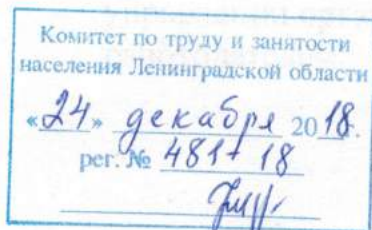 Комитет по труду и занятости
населения Ленинградской области
«24» декабря 2018.
рег. № 481+18